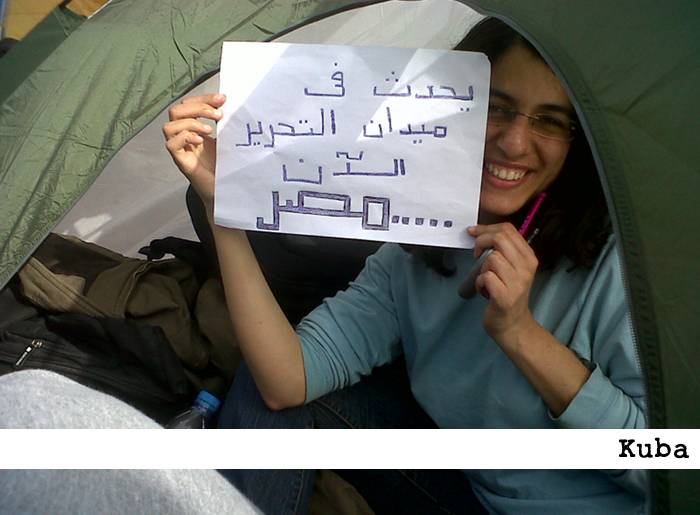 يحدث ف
ميدان التحرير
الآن
.....مصر
Kuba